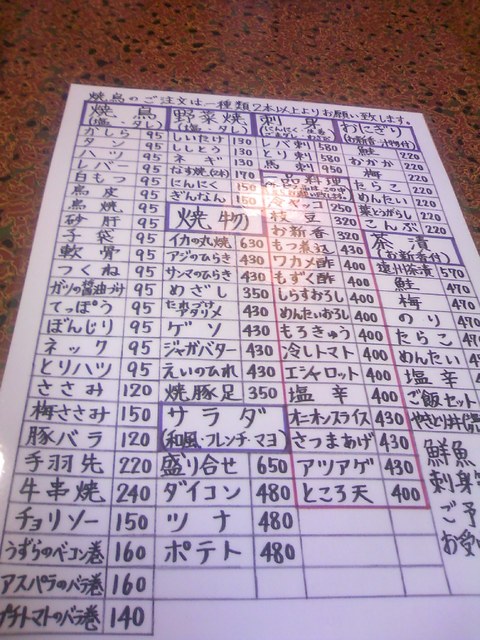 焼鳥のご注文は一種類2本以上よりお願い致します。
焼鳥
(塩・タレ)
かしら 95
タン 95
ハツ 95
レバー 95
白もつ 95
鳥皮 95
鳥焼 95
砂肝 95
子袋 95
軟骨 95
つくね 95
ガツの醤油づけ 95
てっぽう 95
ぼんじり 95
ネック 95
とりハツ 95
ささみ 120
梅ささみ 150
豚バラ 120
手羽先 220
牛串焼 240
チョリソー 150
うずらのベーコン巻 160
アスパラのバラ巻 160
プチトマトのバラ巻 140
野菜焼
(塩・タレ)
しいたけ 130
ししとう 130
ネギ 130
なす焼(2本) 170
にんにく 150
ぎんなん 150
焼物
イカの丸焼 630
アジのひらき 430
サンマのひらき 430
めざし 350
430
ゲソ 430
ジャガバター 430
えいのひれ 430
焼豚足 350
サラダ
(和風・フレンチ・マヨ)
盛り合せ 650
ダイコン 480
ツナ 480
ポテト 480
刺身
レバ刺 580
とり刺 580
馬刺 950
一品料理
冷ヤッコ 250
枝豆 320
お新香 320
もつ煮込 430
ワカメ酢 400
もずく酢 400
しらすおろし 400
めんたいおろし 400
もろきゅう 400
冷しトマト 400
エシャロット 400
塩辛 400
オニオンスライス 430
さつまあげ 430
アツアゲ 430
ところ天 400
おにぎり
(お新香・汁物付)
鮭 220
おかか 220
梅 220
たらこ 220
めんたい 220
葉とうがらし 220
こんぶ 220
茶漬
(お新香付)
遠州茶漬 570
鮭 470
梅 470
のり 470
たらこ 470
めんたい 470
塩辛 470
ご飯セット
やきとり丼
鮮魚
刺身
ご予
お受